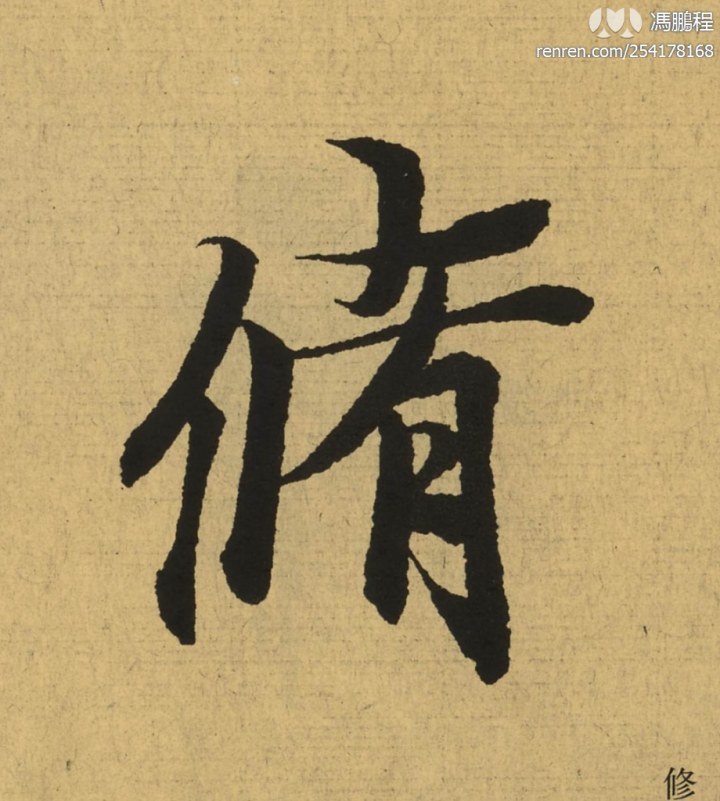 馮鵬程
renren.com/254178168
脩
修